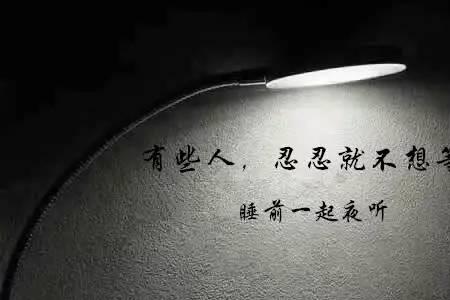 有些人，忍忍就不想
睡前一起夜听